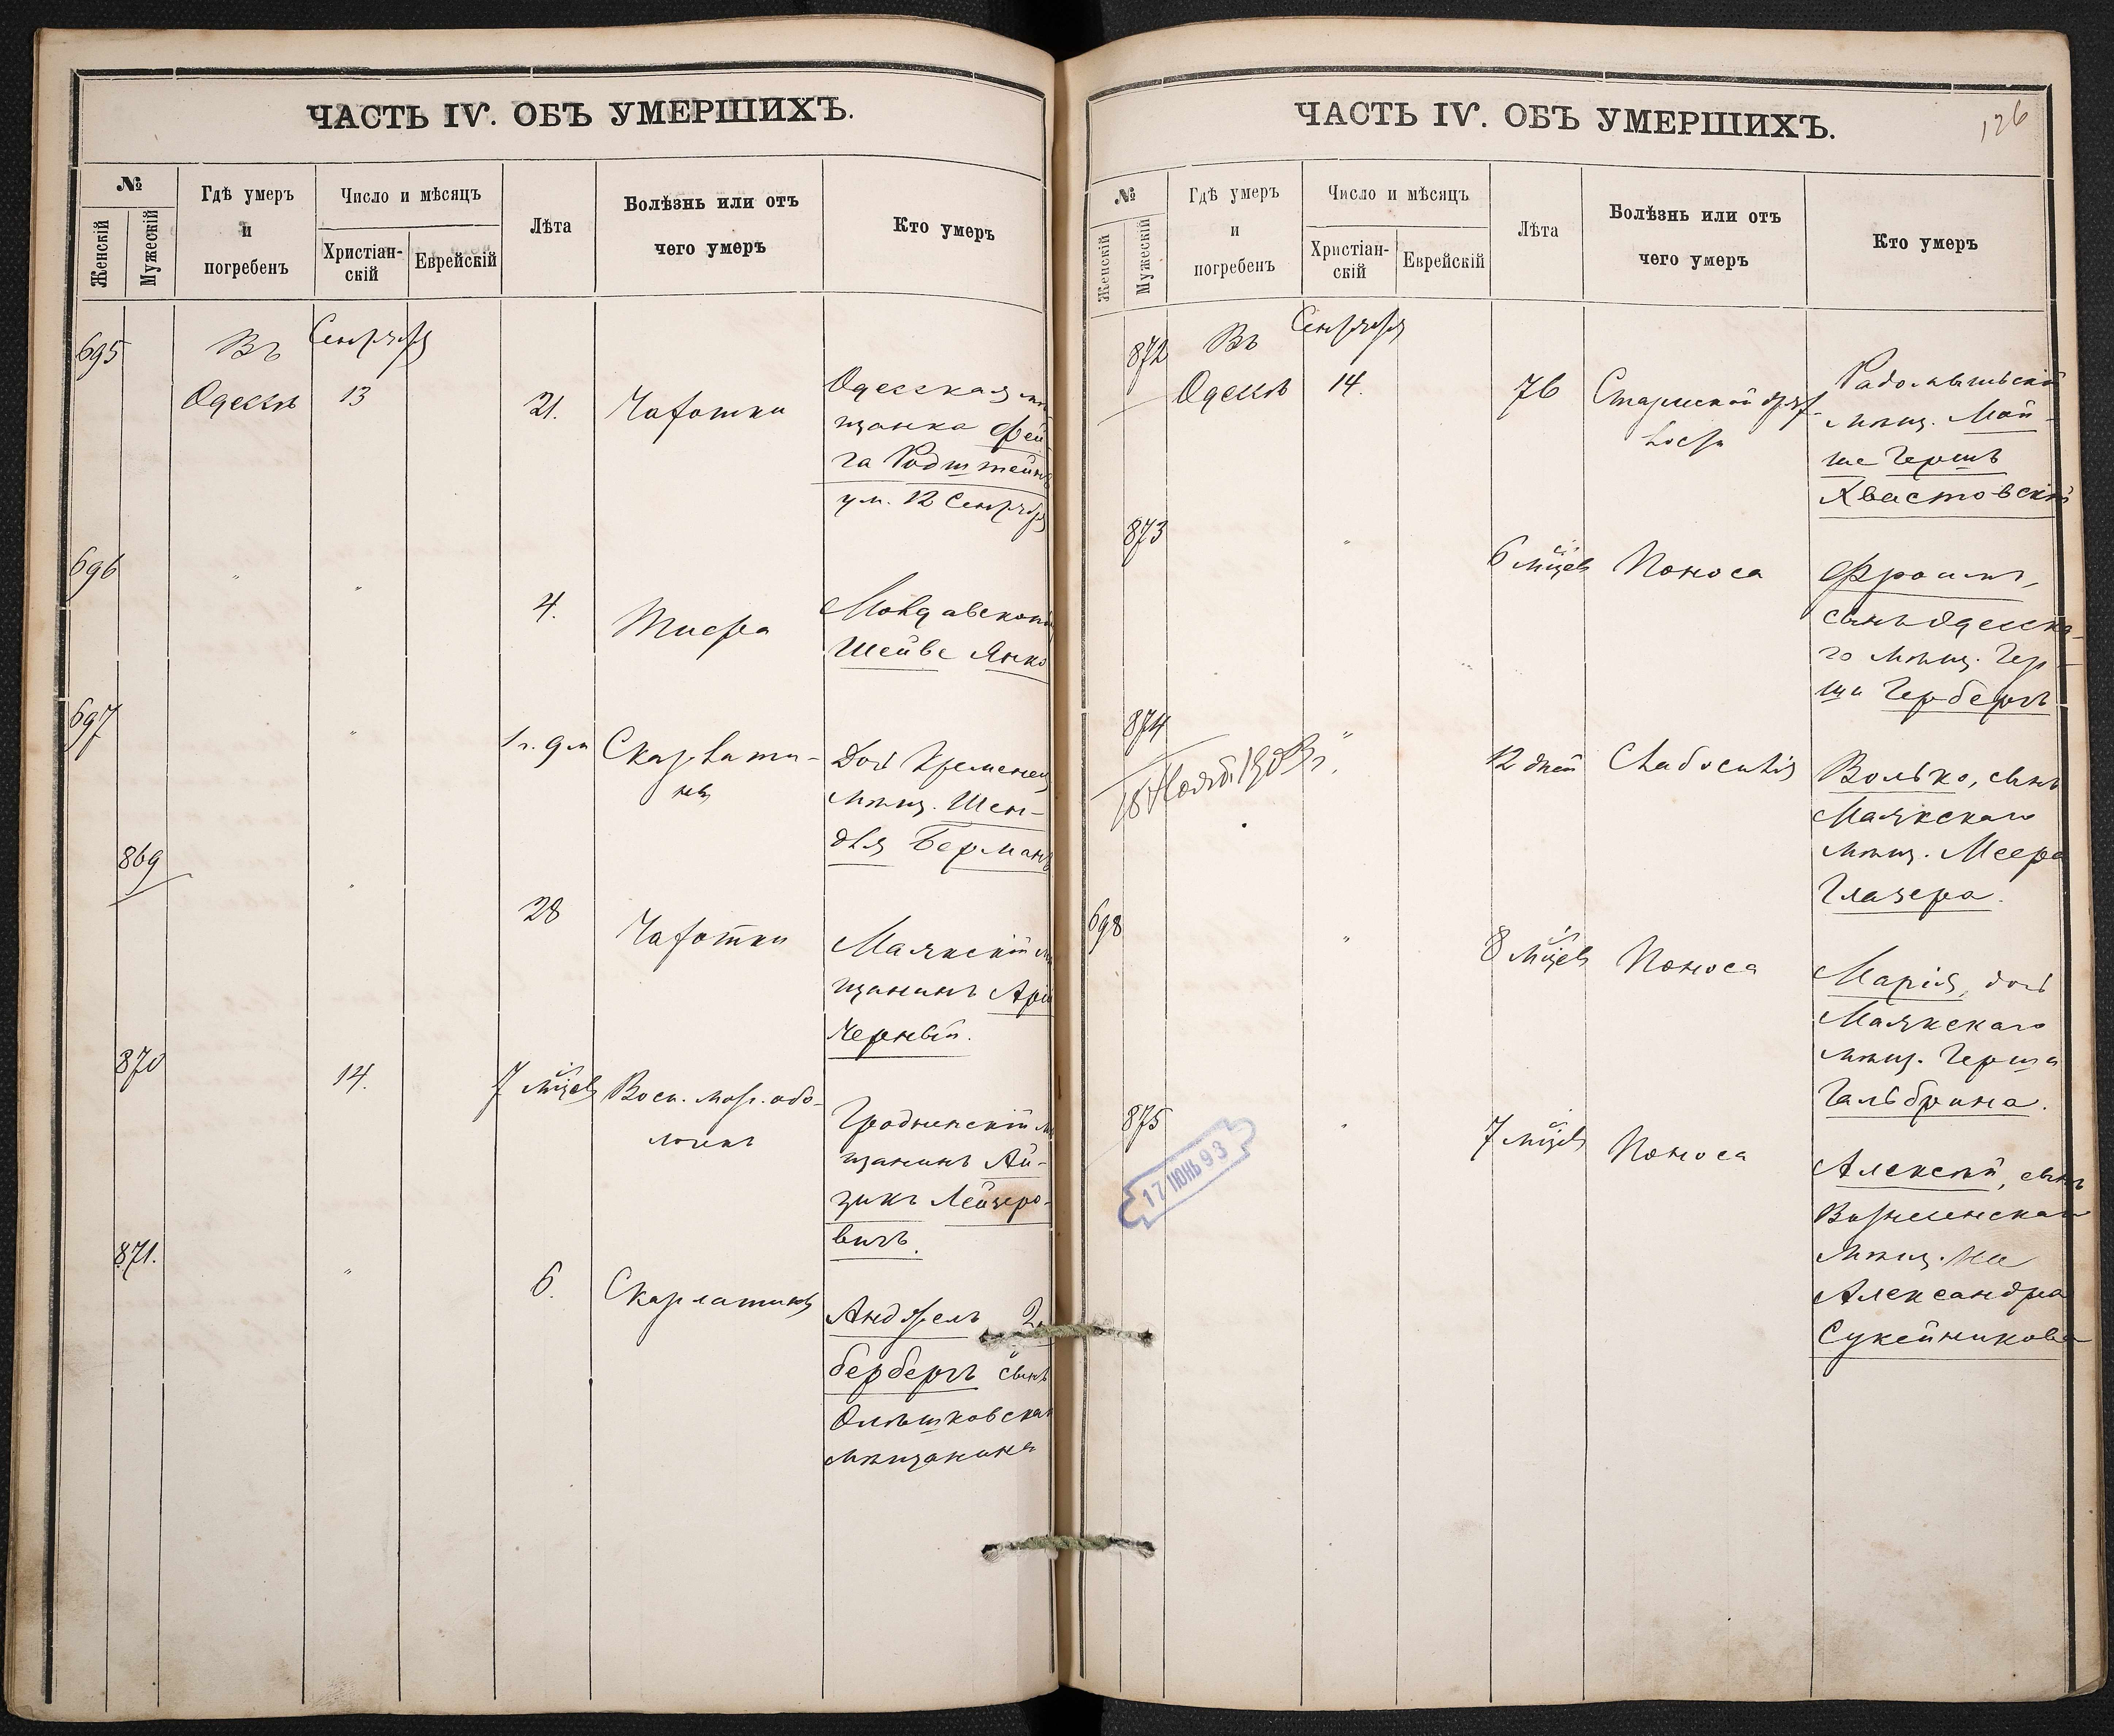 ЧАСТЬ IV. ОБЪ УМЕРШИХЪ.
№
Женскій
Мужескій
Гдѣ умеръ
и
погребенъ
Число и мѣсяцъ
Христіан-
скій
Еврейскій
Лѣта
Болѣзнь или отъ
чего умеръ
Кто умеръ
695
Въ
Одессѣ
Сентября
13
21.
Чахотки
Одесская мѣ
щанка Фей
га Родштейнъ
ум. 12 Сентября
696
"
"
4.
Тифа
Молдавскопод
Шейве Янко
697
"
1 г. 9 м
Скарлати-
ны
Дочь Кременец
мѣщ. Шен-
для Берманъ
869
"
28
Чахотки
Маякскій мѣ
щанинъ Арій
Черный.
870
14.
7 мѣсяцевъ
Восп. мозг. обо-
лочекъ
Гродненскій мѣ
щанинъ Ай-
зикъ Лейзеро-
вичъ.
871.
"
6.
Скарлатины
берберъ сынъ
Олешковскаго
мѣщанина
ЧАСТЬ IV. ОБЪ УМЕРШИХЪ.
126
№
Женскій
Мужескій
Гдѣ умеръ
и
погребенъ
Число и мѣсяцъ
Христіан-
скій
Еврейскій
Лѣта
Болѣзнь или отъ
чего умеръ
Кто умеръ
872
Въ
Одессѣ
Сентября
14.
76
Старческой дрях-
лости
Радомысльскій
мѣщ. Мой-
ше Гершъ
Хвастовскій
873
"
6 мѣсяцевъ
Поноса
Фроимъ,
сынъ Одесска-
го мѣщ. Гер-
ша Гербергъ
874
"
12 дней
Слабосилія
Волько, сынъ
Маякскаго
мѣщ. Меера
Глазера.
698
"
8 мѣсяцевъ
Поноса
Марія, дочь
Маякскаго
мѣщ. Герша
Гальбрина.
875
17 ІЮНЬ 93
"
7 мѣсяцевъ
Поноса
Алексѣй, сынъ
Вознесенскаго
мѣщ.
Александра
Сукейникова